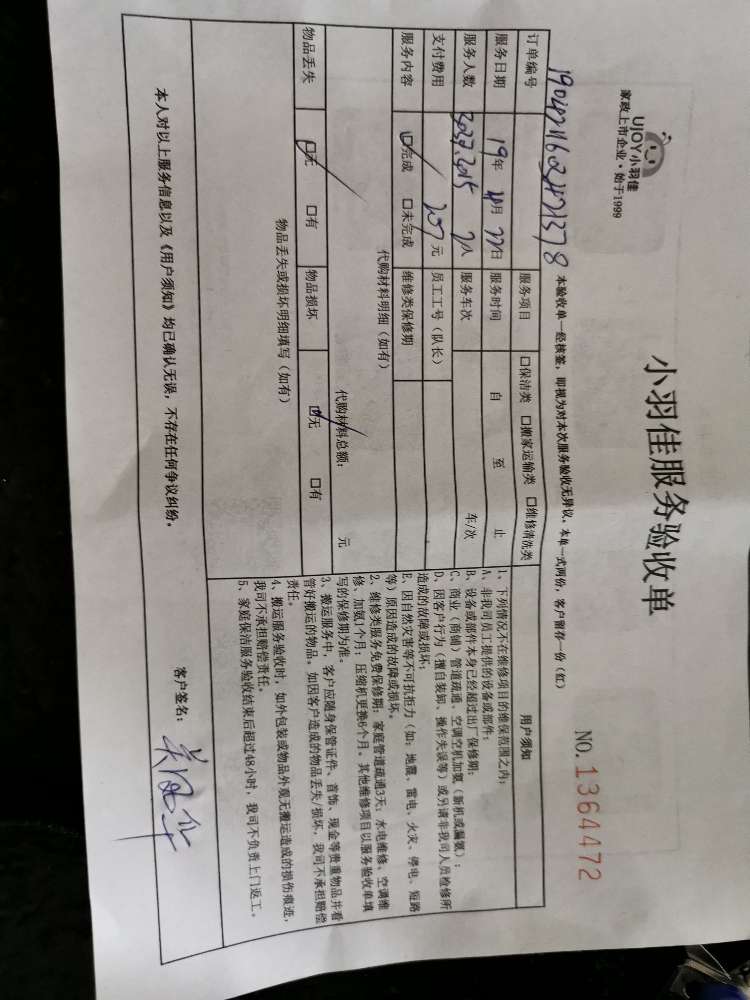 UJOY小羽佳
家政上市企业·始于1999
小羽佳服务验收单
NO.1364472
本验收单一经核签，即视为对本次服务验收无异议。本单一式两份，客户留存一份（红）
订单编号
服务项目 □保洁类 □搬家运输类 □维修清洗类
用户须知
服务日期 19年 4月 22日 服务时间 自 至 止
服务人数 2人 服务车次 车/次
支付费用 207元 员工工号（队长）
服务内容 ☑完成 □未完成 维修类保修期
代购材料明细（如有）
代购材料总额： 元
物品丢失 ☑无 □有 物品损坏 ☑无 □有
物品丢失或损坏明细填写（如有）
1、下列情况不在维修项目的维保范围之内：
A、非我司员工提供的设备或部件；
B、设备或部件本身已经超过出厂保修期；
C、商业（商铺）管道疏通、空调空机加氨（新机或漏氨）；
D、因客户行为（擅自装卸、操作失误等）或另请非我司人员检修所
造成的故障或损坏；
E、因自然灾害等不可抗拒力（如：地震、雷电、火灾、停电、短路
等）原因造成的故障或损坏。
2、维修类服务免费保修期：家庭管道疏通3天；水电维修、空调维
修、加氨1个月；压缩机更换6个月。其他维修项目以服务验收单填
写的保修期为准。
3、搬运服务中，客户应随身保管证件、首饰、现金等贵重物品并看
管好搬运的物品。如因客户造成的物品丢失/损坏，我司不承担赔偿
责任。
4、搬运服务验收时，如外包装或物品外观无搬运造成的损伤痕迹，
我司不承担赔偿责任。
5、家庭保洁服务验收结束后超过48小时，我司不负责上门返工。
本人对以上服务信息以及《用户须知》均已确认无误，不存在任何争议纠纷。
客户签名：